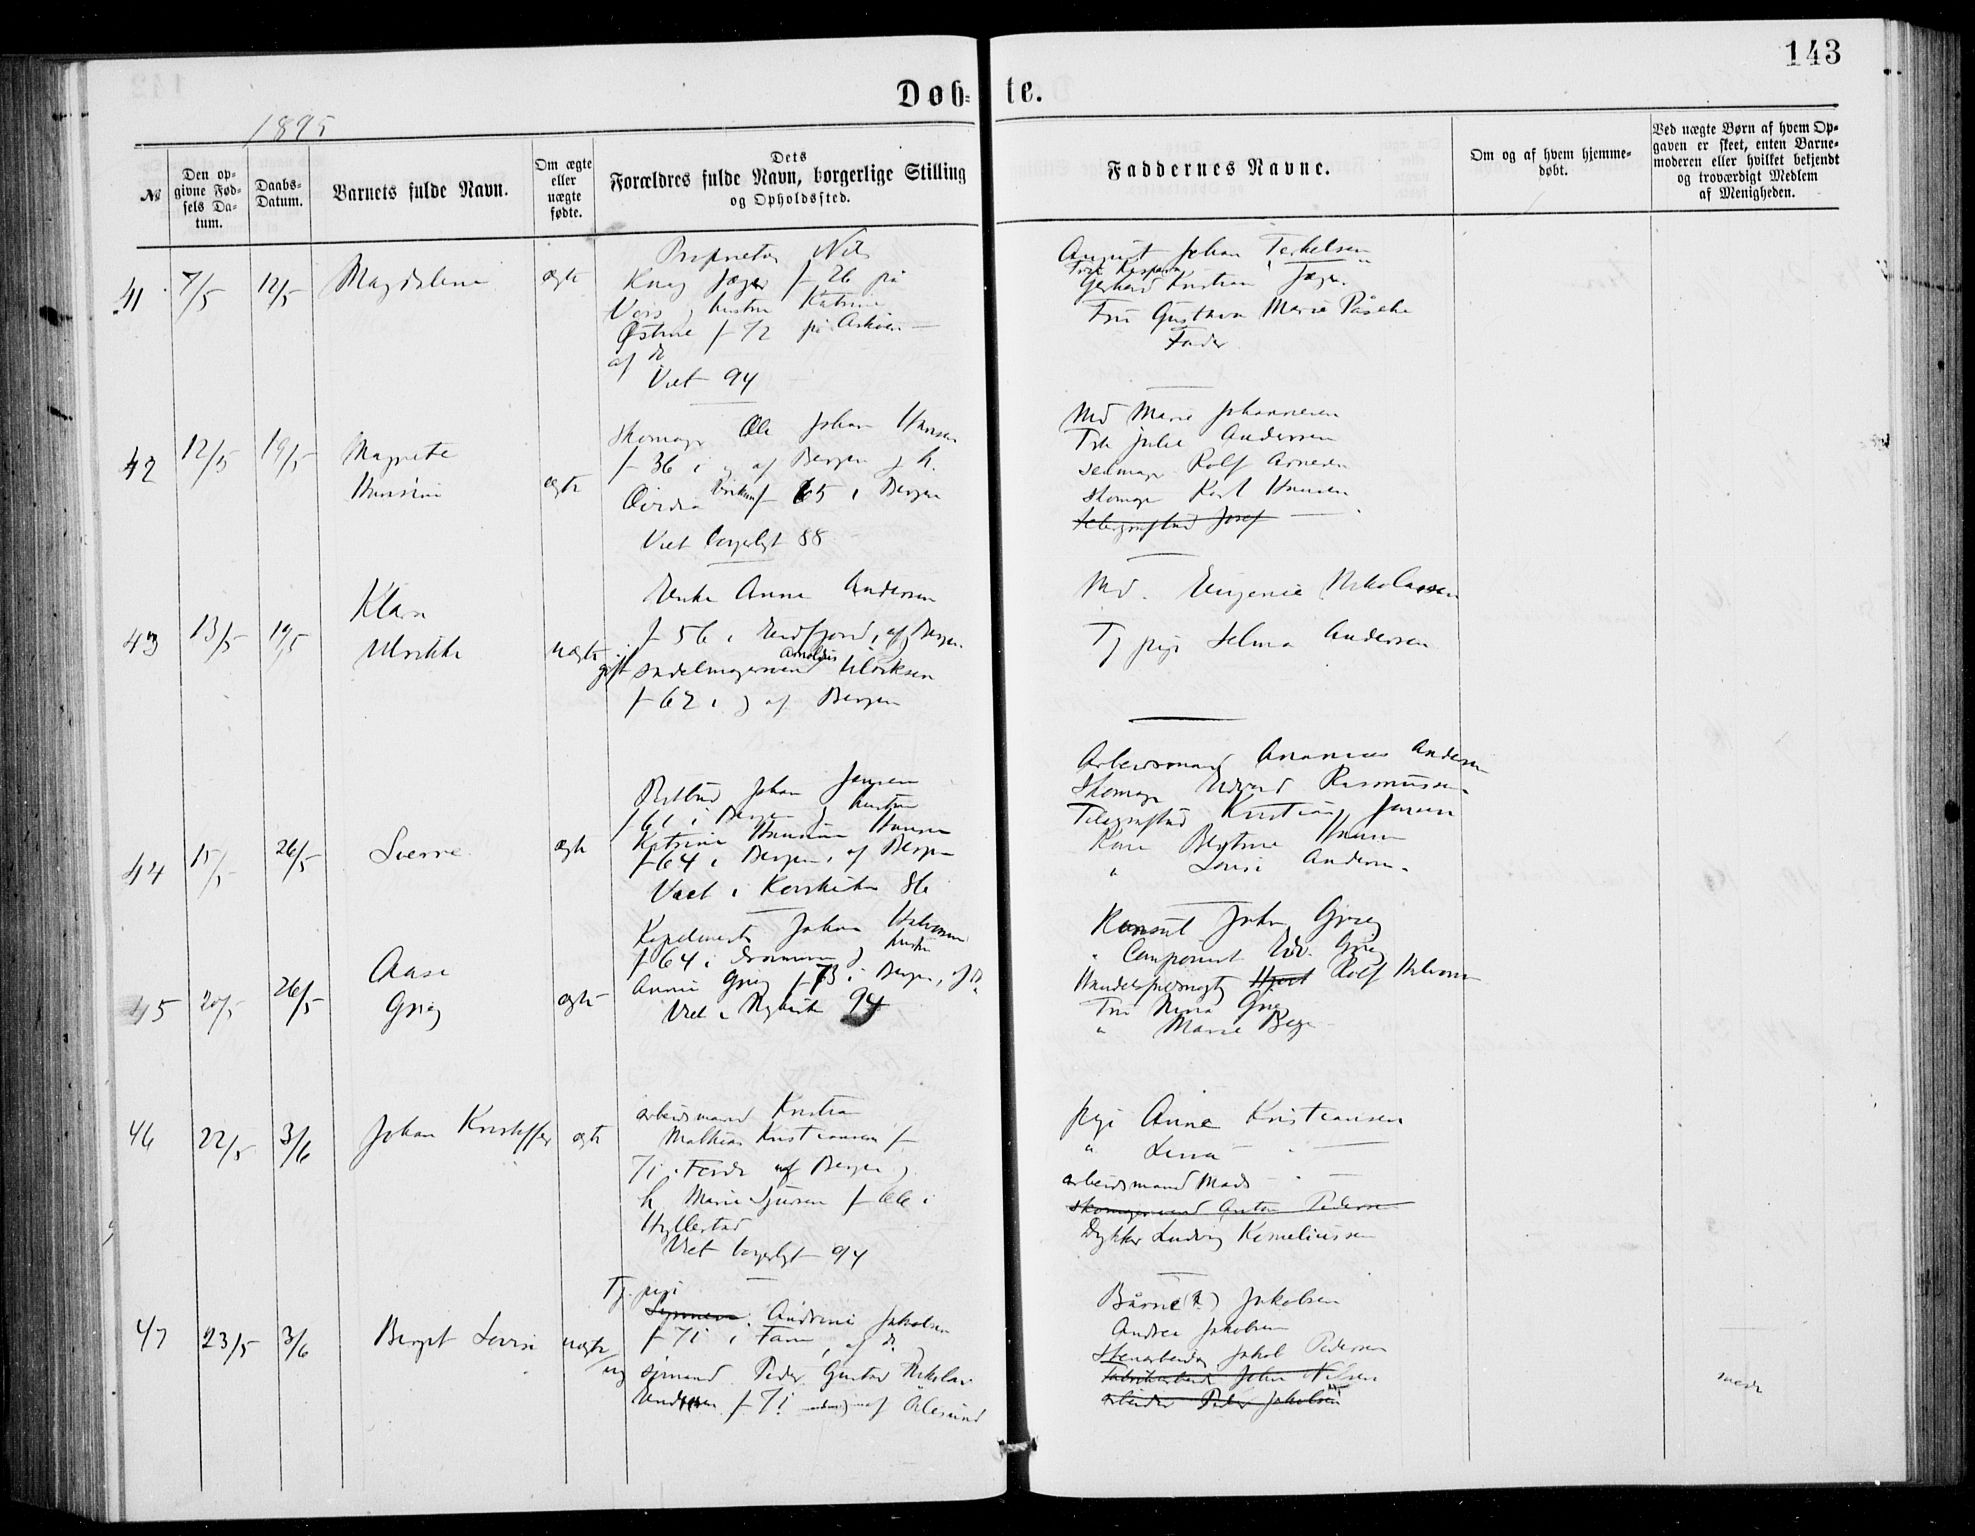 143
Døb- te.
1895
№
Den op-
givne Fød-
sels Da-
tum.
Daabs-
Datum.
Barnets fulde Navn.
Om ægte
eller
uægte
fødte.
Dets
Forældres fulde Navn, borgerlige Stilling
og Opholdssted.
Faddernes Navne.
Om og af hvem hjemme-
døbt.
Ved uægte Børn af hvem Op-
gaven er skeet, enten Barne-
moderen eller hvilket bekjendt
og troværdigt Medlem
af Menigheden.
41
7/5
12/5
Magdalene
ægte
Proprietær Nils
Knag Jæger f 26 på
Voss og hustru Katrine
Østine f 72 på Askøen
af d
Viet 94
August Johan Terkelsen
Gerhard Kristian Jæger
Fru Gustava Marie Påsche
Fader
42
12/5
19/5
Magnete
Hansine
ægte
Skomager Ole Johan Hansen
f 36 i og af Bergen og h.
f 65 i Bergen
Viet borgerligt 88
Md Marie Johannesen
Julie Andersen
Rolf Arnesen
Skomager Karl Hansen
Telegrafbud Josef
43
13/5
19/5
Klara
Ulrikke
uægte
Enke Anna Andersen
f 56 i Eidfjord, af Bergen
gift sadelmagersvend Arnoldus Ulriksen
f 62 i og af Bergen
Md. Eugenie Nikolaisen
Tj pige Selma Andersen
44
15/5
26/5
Sverre
ægte
Postbud Johan Jensen
f 61 i Bergen og hustru
Katrine Hansine Hansen
f 64 i Bergen, af Bergen
Viet i Korskirken 86
Arbeidsmand Ananias Andersen
Skomager Edvard Rasmussen
Telegrafbud Kristian Jensen
Kone Bertine Hansen
" Lovise Andersen
45
20/5
26/5
Aase
Grieg
ægte
Kapelmester Johan Halvorsen
f 64 i Drammen og hustru
Annie Grieg f 73 i Bergen, af B.
Viet i Nykirken 94
Konsul John Grieg
" Componist Edv. Grieg
Handelsfuldmægtig Hjort Rolf Halvorsen
Fru Nina Grieg
" Marie Beyer
46
22/5
3/6
Johan Kristoffer
ægte
arbeidsmand Kristian
Mathias Kristiansen f
71 i Førde af Bergen og
h Marie Sjursen f 66 i
Hyllestad
Viet borgerligt 94
pige Anne Kristiansen
" Lena
arbeidsmand Mads
Skomagersvend Anton Pedersen
Dykker Ludvig Korneliussen
47
23/5
3/6
Bergit Lovise
uægte
Tj. pige
Andrine Jakobsen
f 71 i Fane, af d.
og sømand Peder Gustav Nikolai
Andersen f 71 af Ålesund
Bårne (?) Jakobsen
Andrea Jakobsen
Stenarbeider Jakob Pedersen
Fabrikarbeider John Nilsen
arbeider Peder Jakobsen
mode